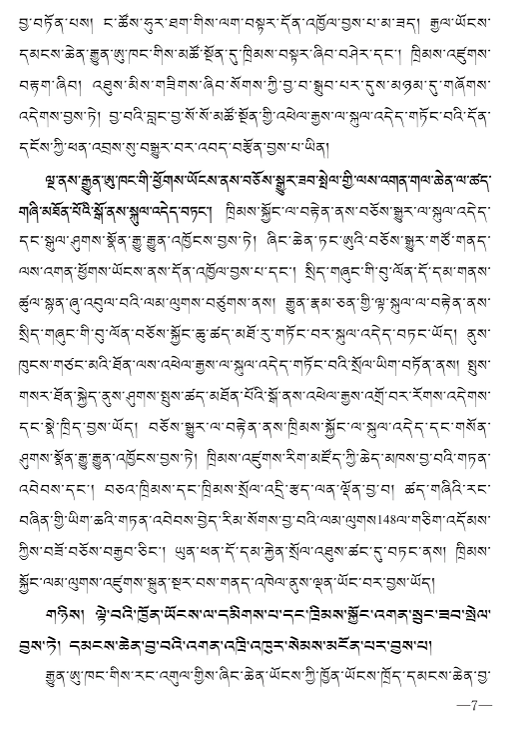 བྱ་བཏོན་པས། ང་ཚོས་ཧུར་ཐག་གིས་ལག་བསྟར་དོན་འཁྱོལ་བྱས་པ་མ་ཟད། རྒྱལ་ཡོངས་
དམངས་ཆེན་རྒྱུན་ཨུ་ཁང་གིས་མཚོ་སྔོན་དུ་ཁྲིམས་བསྟར་ཞིབ་བཤེར་དང་། ཁྲིམས་འཛུགས་
བརྟག་ཞིབ། འཐུས་མིས་གཟིགས་ཞིབ་སོགས་ཀྱི་བྱ་བ་སྒྲུབ་པར་དུས་མཉམ་དུ་གཞོགས་
འདེགས་བྱས་ཏེ། བྱ་བའི་བླང་བྱ་སོ་སོ་མཚོ་སྔོན་གྱི་འཕེལ་རྒྱས་ལ་སྐུལ་འདེད་གཏོང་བའི་དོན་
དངོས་ཀྱི་ཕན་འབྲས་སུ་བསྒྱུར་བར་འབད་བརྩོན་བྱས་པ་ཡིན།
ལྔ་ནས་རྒྱུན་ཨུ་ཁང་གི་ཕྱོགས་ཡོངས་ནས་བཅོས་སྒྱུར་ཟབ་སྤེལ་གྱི་ལས་འགན་གལ་ཆེན་ལ་ཚད་
གཞི་མཐོན་པོའི་སྒོ་ནས་སྐུལ་འདེད་བཏང་། ཁྲིམས་སྐྱོང་ལ་བརྟེན་ནས་བཅོས་སྒྱུར་ལ་སྐུལ་འདེད་
དང་སྐུལ་ཤུགས་སྣོན་རྒྱུ་རྒྱུན་འཁྱོངས་བྱས་ཏེ། ཞིང་ཆེན་ཏང་ཨུའི་བཅོས་སྒྱུར་གཙོ་གནད་
ལས་འགན་ཕྱོགས་ཡོངས་ནས་དོན་འཁྱོལ་བྱས་པ་དང་། སྲིད་གཞུང་གི་བུ་ལོན་དོ་དམ་གནས་
ཚུལ་སྙན་ཞུ་འབུལ་བའི་ལམ་ལུགས་བཙུགས་ནས། རྒྱུན་རྣམ་ཅན་གྱི་ལྟ་སྐུལ་ལ་བརྟེན་ནས་
སྲིད་གཞུང་གི་བུ་ལོན་བཅོས་སྐྱོང་ཆུ་ཚད་མཐོ་རུ་གཏོང་བར་སྐུལ་འདེད་བཏང་ཡོད། ནུས་
ཁུངས་གཙང་མའི་ཐོན་ལས་འཕེལ་རྒྱས་ལ་སྐུལ་འདེད་གཏོང་བའི་སྲོལ་ཡིག་བཏོན་ནས། སྤུས་
གསར་ཐོན་སྐྱེད་ནུས་ཤུགས་སྤུས་ཚད་མཐོན་པོའི་སྒོ་ནས་འཕེལ་རྒྱས་འགྲོ་བར་རོགས་འདེགས་
དང་སྣེ་ཁྲིད་བྱས་ཡོད། བཅོས་སྒྱུར་ལ་བརྟེན་ནས་ཁྲིམས་སྐྱོང་ལ་སྐུལ་འདེད་དང་གསོན་
ཤུགས་སྣོན་རྒྱུ་རྒྱུན་འཁྱོངས་བྱས་ཏེ། ཁྲིམས་འཛུགས་རིག་མཛོད་ཀྱི་ཆེད་མཁས་བྱ་བའི་གཏན་
འབེབས་དང་། བཅའ་ཁྲིམས་དང་ཁྲིམས་སྲོལ་འདྲི་རྩད་ལན་ལྡོན་བྱ་བ། ཚད་གཞིའི་རང་
བཞིན་གྱི་ཡིག་ཆའི་གཏན་འབེབས་བྱེད་རིམ་སོགས་བྱ་བའི་ལམ་ལུགས148ལ་གཅིག་འདོམས་
ཀྱིས་བཟོ་བཅོས་བརྒྱབ་ཅིང་། ཡུན་ཕན་དོ་དམ་རྐྱེན་སྲོལ་འཐུས་ཚང་དུ་བཏང་ནས། ཁྲིམས་
སྐྱོང་ལམ་ལུགས་འཛུགས་སྐྲུན་སྔར་བས་གནད་འཁེལ་ནུས་ལྡན་ཡོང་བར་བྱས་ཡོད།
གཉིས། ལྟེ་བའི་ཁྱོན་ཡོངས་ལ་དམིགས་པ་དང་ཁྲིམས་སྐྱོང་འགན་སྲུང་ཟབ་སྤེལ་
བྱས་ཏེ། དམངས་ཆེན་བྱ་བའི་འགན་འཁྲི་འཁུར་སེམས་མངོན་པར་བྱས་པ།
རྒྱུན་ཨུ་ཁང་གིས་རང་འགུལ་གྱིས་ཞིང་ཆེན་ཡོངས་ཀྱི་ཁྱོན་ཡོངས་ཁྲོད་དམངས་ཆེན་བྱ་
—7—